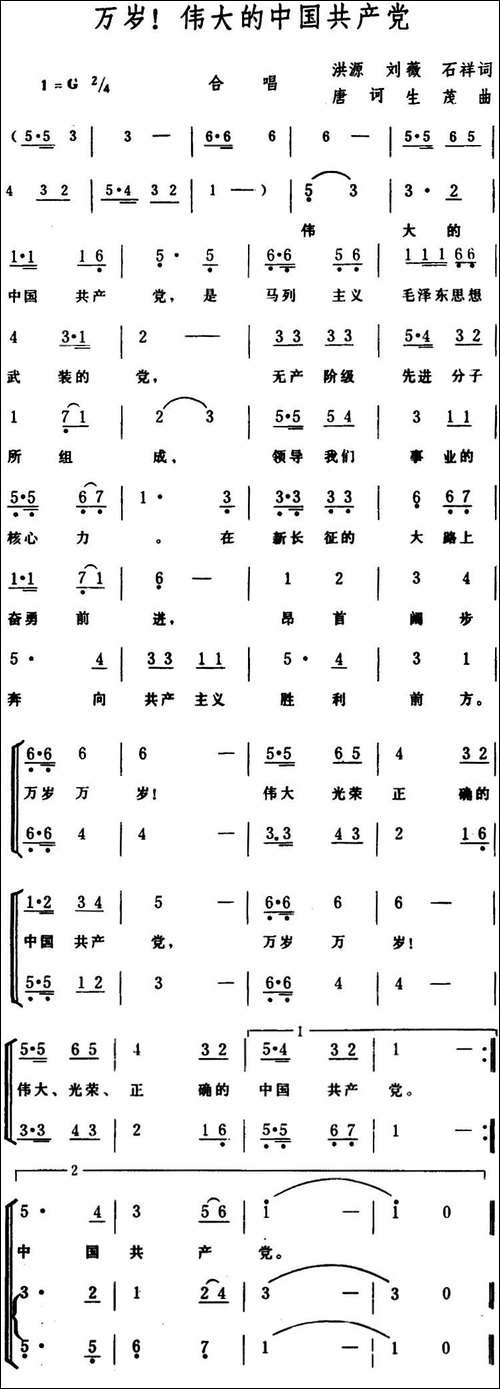 万岁！伟大的中国共产党
1＝G 2/4 合唱 洪源 刘薇 石祥词
唐诃 生茂 曲
（5·5 3 | 3 — | 6·6 6 | 6 — | 5·5 6 5 |
4 3 2 | 5·4 3 2 | 1 —） | 5 3 | 3· 2 |
伟 大 的
1·1 1 6 | 5· 5 | 6·6 5 6 | 1 1 1 6 6 |
中国 共产 党，是 马列 主义 毛泽东思想
4 3·1 | 2 — | 3 3 3 3 | 5·4 3 2 |
武 装的 党， 无产 阶级 先进 分子
1 7 1 | 2 3 | 5·5 5 4 | 3 1 1 |
所 组 成， 领导 我们 事 业的
5·5 6 7 | 1· 3 | 3·3 3 3 | 6 6 7 |
核心 力 。在 新长 征的 大 路上
1·1 7 1 | 6 — | 1 2 | 3 4 |
奋勇 前 进， 昂 首 阔 步
5· 4 | 3 3 1 1 | 5· 4 | 3 1 |
奔 向 共产 主义 胜 利 前 方。
6·6 6 | 6 — | 5·5 6 5 | 4 3 2
万岁 万 岁！ 伟大 光荣 正 确的
6·6 4 | 4 — | 3.3 4 3 | 2 1 6
1·2 3 4 | 5 — | 6·6 6 | 6 —
中国 共产 党， 万岁 万 岁！
5·5 1 2 | 3 — | 6·6 4 | 4 —
I
5·5 6 5 | 4 3 2 | 5·4 3 2 | 1 — :‖
伟大、光荣、正 确的 中国 共产 党。
3·3 4 3 | 2 1 6 | 5·5 6 7 | 1 — :‖
2
5· 4 | 3 5 6 | 1 — | 1 0
中 国 共 产 党。
3· 2 | 1 2 4 | 3 — | 3 0
5· 5 | 6 7 | 1 — | 1 0